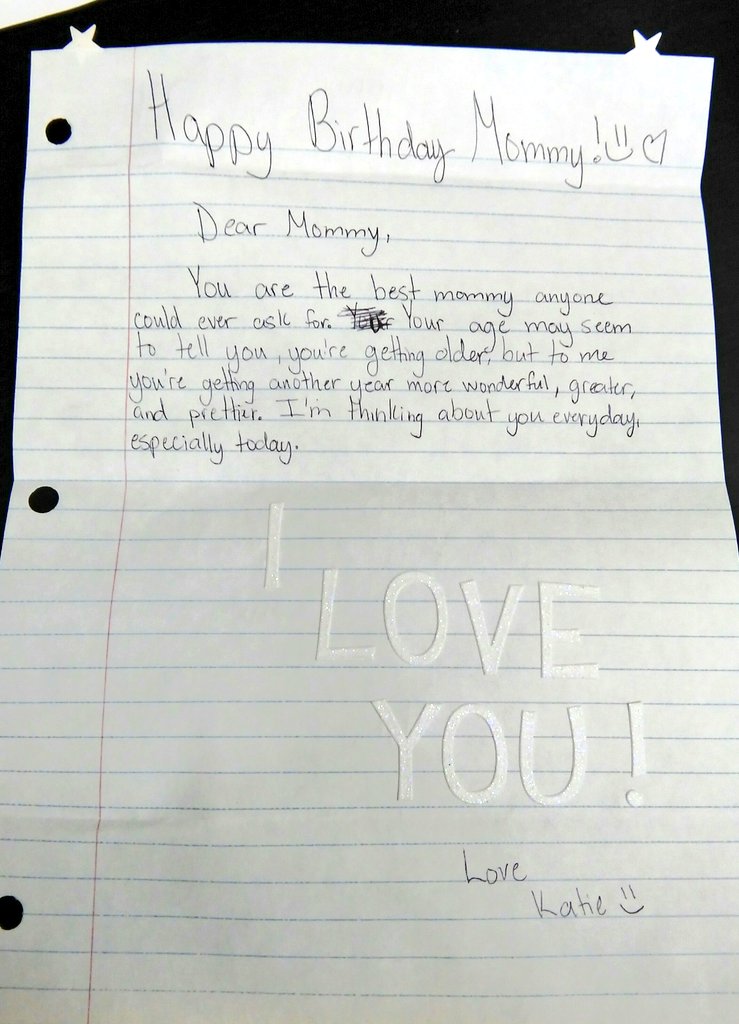 Happy Birthday Mommy! :) ♡
Dear Mommy,
You are the best mommy anyone
could ever ask for. Your age may seem
to tell you, you're getting older, but to me
you're getting another year more wonderful, greater,
and prettier. I'm thinking about you everyday,
especially today.
I
LOVE
YOU!
Love
Katie :)